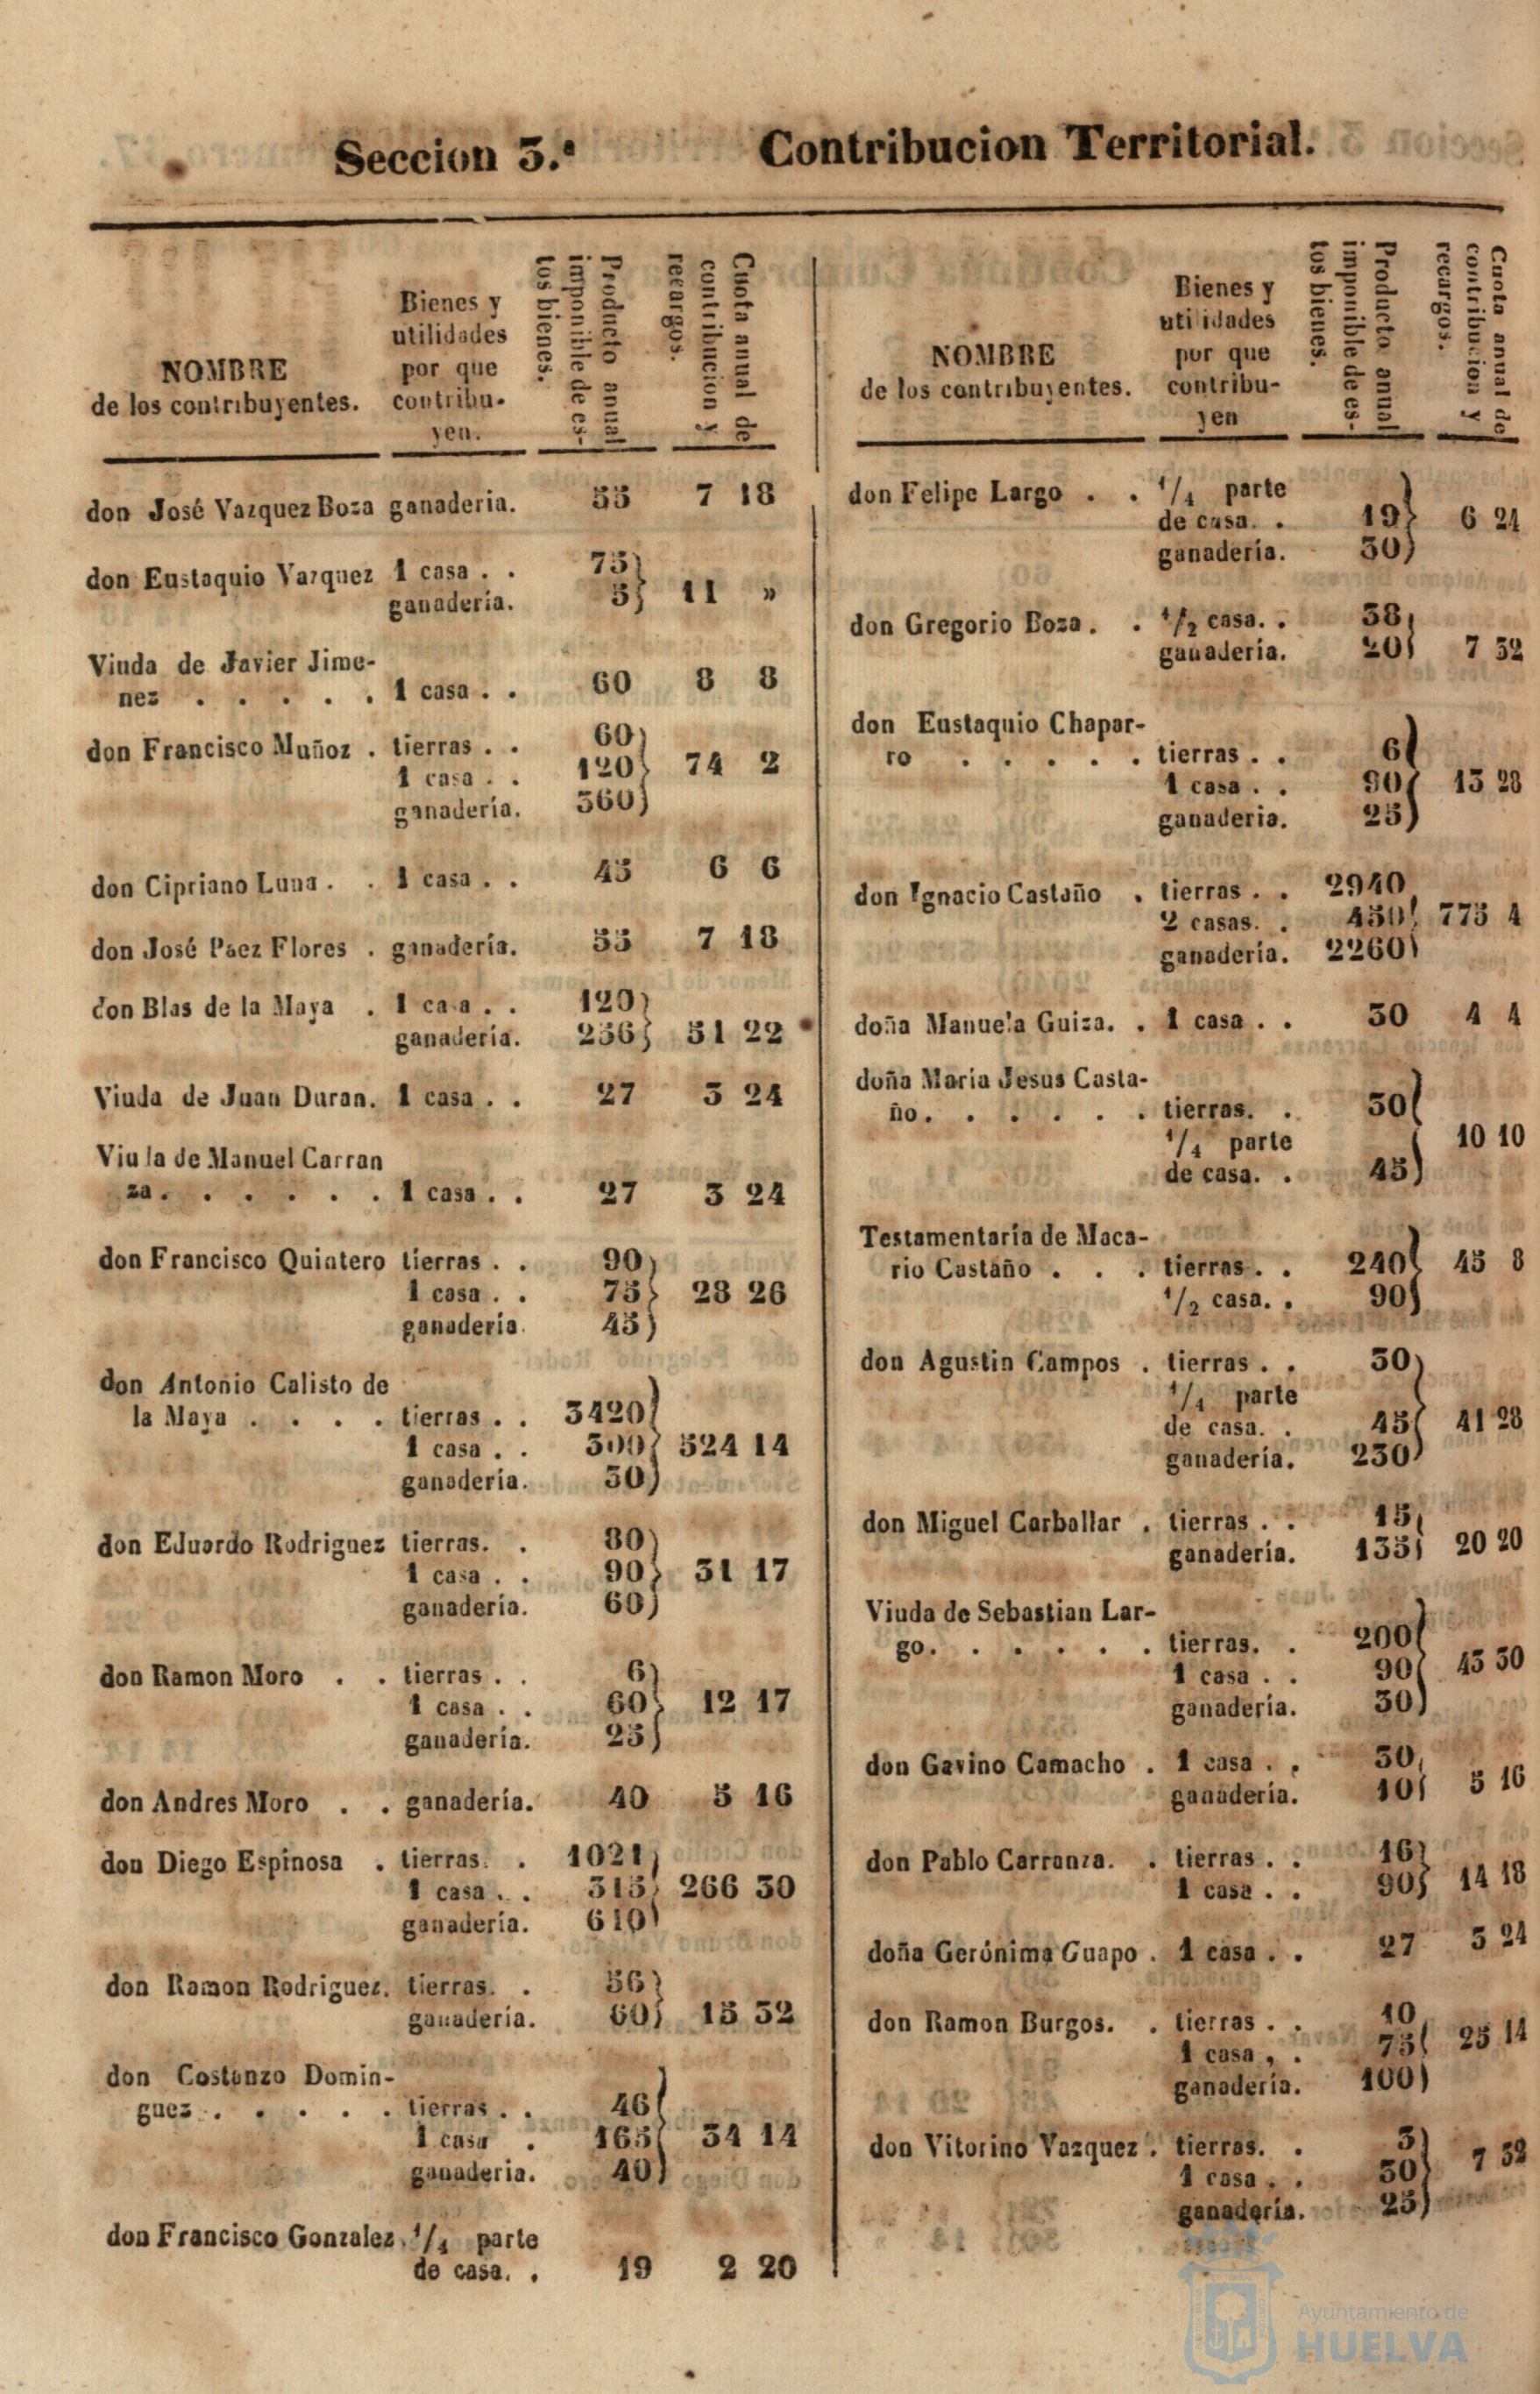 Seccion 3.ª Contribucion Territorial.
NOMBRE
de los contribuyentes.
Bienes y
utilidades
por que
contribu-
yen.
Producto anual
imponible de es-
tos bienes.
Cuota anual de
contribucion y
recargos.
don José Vazquez Boza ganaderia. 55 7 18
don Eustaquio Vazquez 1 casa . . 75
ganadería. 5 11 »
Viuda de Javier Jime-
nez . . . . . 1 casa . . 60 8 8
don Francisco Muñoz . tierras . . 60
1 casa . . 120 74 2
ganadería. 360
don Cipriano Luna . . 1 casa . . 45 6 6
don José Paez Flores . ganadería. 55 7 18
don Blas de la Maya . 1 casa . . 120
ganadería. 256 51 22
Viuda de Juan Duran. 1 casa . . 27 3 24
Viuda de Manuel Carran
za . . . . . . 1 casa . . 27 3 24
don Francisco Quintero tierras . . 90
1 casa . . 75 28 26
ganadería. 45
don Antonio Calisto de
la Maya . . . . tierras . . 3420
1 casa . . 300 524 14
ganadería. 30
don Eduardo Rodriguez tierras. . 80
1 casa . . 90 31 17
ganadería. 60
don Ramon Moro . . tierras . . 6
1 casa . . 60 12 17
ganadería. 25
don Andres Moro . . ganadería. 40 5 16
don Diego Espinosa . tierras. . 1021
1 casa . . 315 266 30
ganadería. 610
don Ramon Rodriguez. tierras. . 56
ganadería. 60 15 32
don Costanzo Domin-
guez . . . . . tierras . . 46
1 casa . 165 34 14
ganaderia. 40
don Francisco Gonzalez. 1/4 parte
de casa. . 19 2 20
NOMBRE
de los contribuyentes.
Bienes y
uti idades
por que
contribu-
yen
Producto anual
imponible de es-
tos bienes.
Cuota anual de
contribucion y
recargos.
don Felipe Largo . . 1/4 parte
de casa. . 19 6 24
ganadería. 30
don Gregorio Boza . . 1/2 casa. . 38
ganadería. 20 7 32
don Eustaquio Chapar-
ro . . . . . tierras . . 6
1 casa . . 90 15 28
ganaderia. 25
don Ignacio Castaño . tierras . . 2940
2 casas. . 450 775 4
ganadería. 2260
doña Manuela Guiza. . 1 casa . . 30 4 4
doña Maria Jesus Casta-
ño. . . . . . tierras. . 30
1/4 parte 10 10
de casa. . 45
Testamentaría de Maca-
rio Castaño . . . tierras . . 240 45 8
1/2 casa. . 90
don Agustin Campos . tierras . . 30
1/4 parte
de casa. . 45 41 28
ganadería. 230
don Miguel Carballar . tierras . . 15
ganadería. 135 20 20
Viuda de Sebastian Lar-
go. . . . . . tierras. . 200
1 casa . . 90 43 30
ganadería. 30
don Gavino Camacho . 1 casa . . 30
ganadería. 10 5 16
don Pablo Carranza. . tierras . . 16
1 casa . . 90 14 18
doña Gerónima Guapo . 1 casa . . 27 3 24
don Ramon Burgos. . tierras . . 10
1 casa , . 75 25 14
ganadería. 100
don Vitorino Vazquez . tierras. . 3
1 casa . . 30 7 32
ganadería. 25
Ayuntamiento de
HUELVA